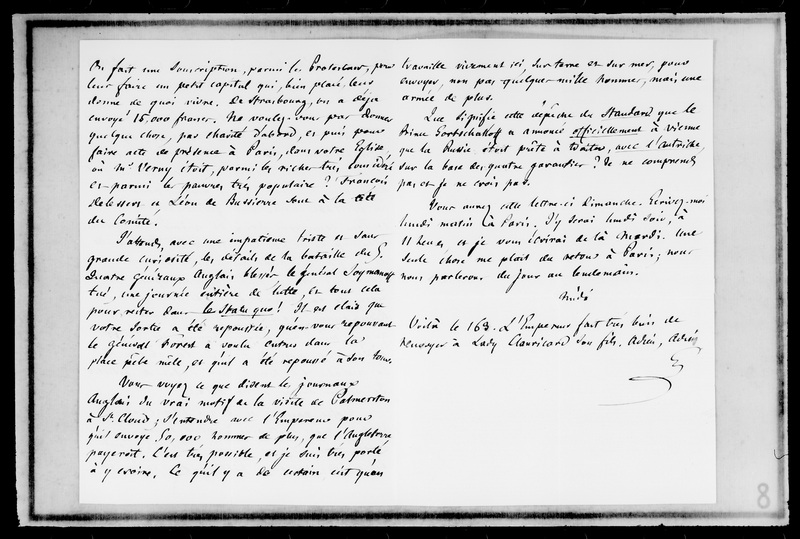 On fait une souscription, parmi les Protestans, pour
leur faire un petit capital qui, bien placé, leur
donne de quoi vivre. De Strasbourg, on a déjà
envoyé 15,000 francs. Ne voulez-vous pas donner
quelque chose, par charité d'abord, et puis pour
faire acte de présence à Paris, dans votre Eglise,
où Mr Verny étoit, parmi les riches très considéré
et parmi les pauvres très populaire ? François
Delessert et Léon de Bussierre sont à la tête
du Comité.
J'attends, avec une impatience triste et sans
grande curiosité, les détails de la bataille du 5.
Quatre Généraux Anglais blessés, le général Soymonoff
tué, une journée entière de lutte, et tout cela
pour rester dans le statu quo ! Il est clair que
votre sortie a été repoussée, qu'en vous repoussant
le général Forest a voulu entrer dans la
place pêle mêle, et qu'il a été repoussé à son tour.
Vous voyez ce que disent les journaux
Anglais du vrai motif de la visite de Palmerston
à St Cloud ; s'entendre avec l'Empereur pour
qu'il envoye 50,000 hommes de plus, que l'Angleterre
payeroit. C'est très possible, et je suis très porté
à y croire. Ce qu'il y a de certain c'est qu'on
travaille vivement ici, sur terre et sur mer, pour
envoyer, non pas quelques mille hommes, mais une
armée de plus.
Que signifie cette dépêche du Standard que le
Prince Gortschakoff a annoncé officiellement à Vienne
que la Russie étoit prête à traiter, avec l'Autriche,
sur la base des quatre garanties ? Je ne comprends
pas et je ne crois pas.
Vous aurez cette lettre-ci Dimanche. Ecrivez-moi
lundi matin à Paris. J'y serai lundi soir, à
11 heures, et je vous écrirai de là Mardi. Une
seule chose me plait du retour à Paris ; nous
nous parlerons du jour au lendemain.
Midi
Voilà le 163. L'Empereur fait très bien de
renvoyer à Lady Clanricard son fils. Adieu, Adieu
G
8